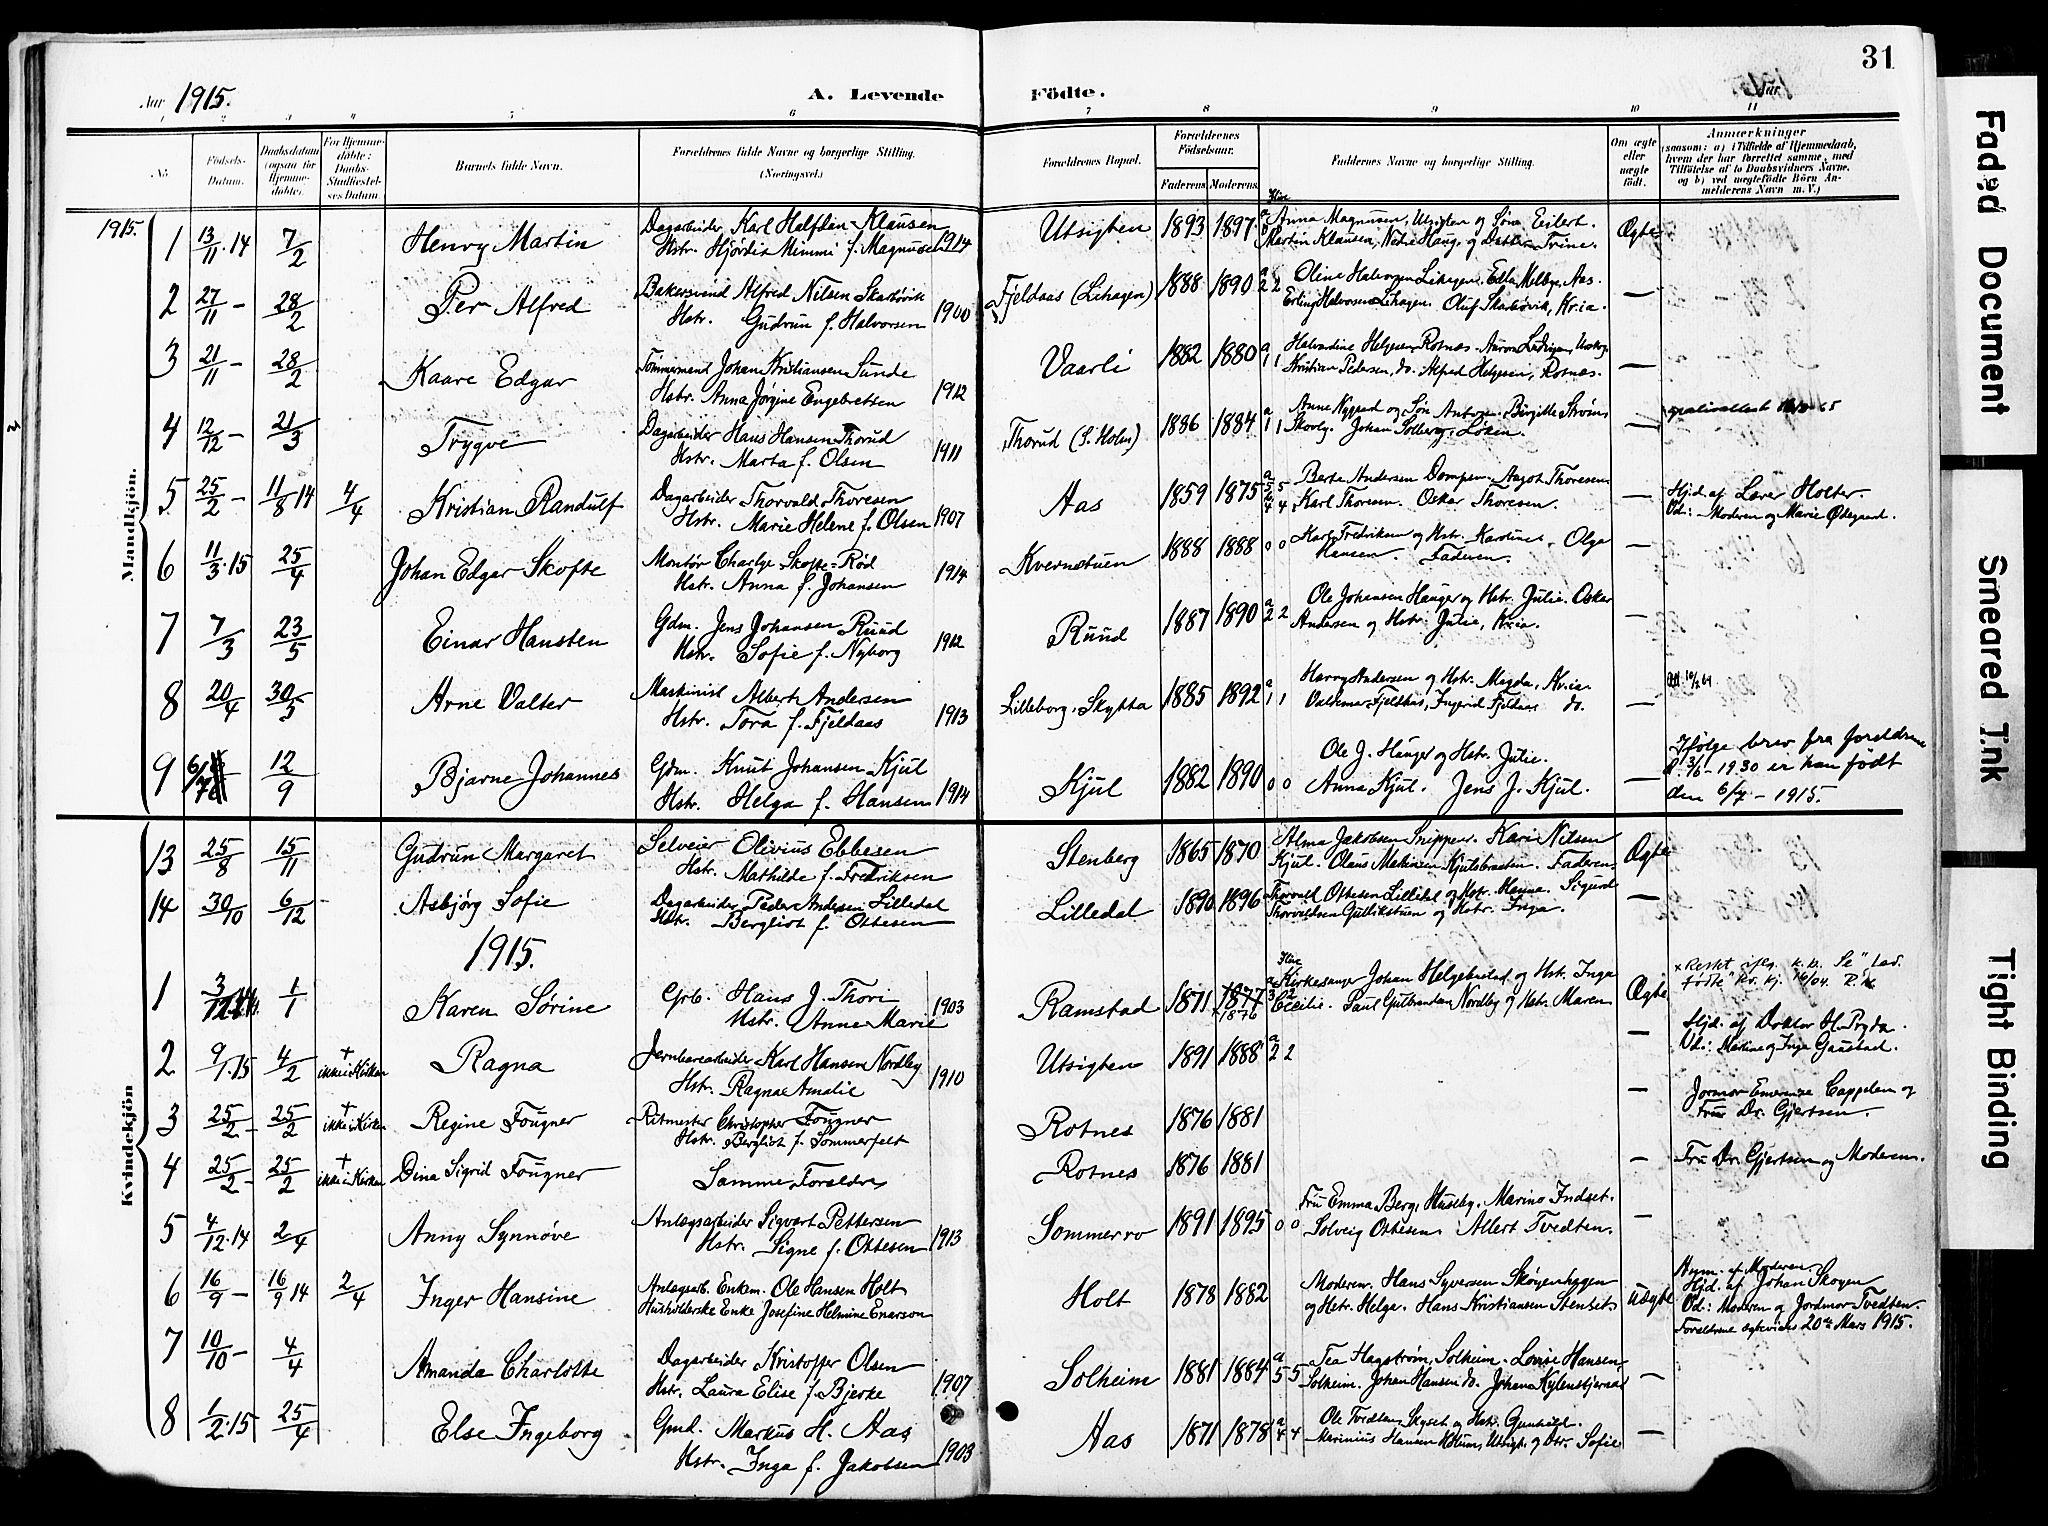 31
Aar 1915.
A. Levende Födte.
Aar
1 2 3 4 5 6 7 8 9 10 11
No.
Födsels-Datum.
Daabsdatum (ogsaa for Hjemmedöbte).
For Hjemmedöbte: Daabs-Stadfæstelses Datum.
Barnets fulde Navn.
Forældrenes fulde Navne og borgerlige Stilling. (Næringsvei.)
Forældrenes Bopæl.
Forældrenes Födselsaar.
Faderens. Moderens.
Faddernes Navne og borgerlige Stilling.
Om ægte eller uægte födt.
Anmærkninger
(saasom: a) i Tilfælde af Hjemmedaab, hvem der har forrettet samme, med Tilföielse af to Daabsvidners Navne, og b) ved uægtefödte Börn Anmelderens Navn m. V.)
Mandkjön.
1915.
1 13/11.14 7/2 Henry Martin Dagarbeider Karl Halfdan Klausen
Hstr. Hjördis Mimmi f. Magnussen 1914 Utsigten 1893 1897 Anna Magnussen, Utsigten og Søn Eilert.
Martin Klausen, Nedre Haug, og Datter Trine. Ægte
2 27/11 – 28/2 Per Alfred Bakersvend Alfred Nilsen Skarbövik
Hstr. Gudrun f. Halvorsen 1900 Fjeldaas (Lihagen) 1888 1890 2 2 Oline Halvorsen Lihagen, Edla Melby, Aas.
Erling Halvorsen Lihagen. Oluf Skarbövik, Kr.ia. —
3 21/11 – 28/2 Kaare Edgar Tömmermand Johan Kristiansen Sunde
Hstr. Anna Jørgine Engebretsen 1912 Vaarli 1882 1880 1 1 Halvardine Helgesen, Rotnæs.
Kristian Pedersen, do. Alfred Helgesen, Rotnæs. —
4 12/12 – 21/3 Trygve Dagarbeider Hans Hansen Thorud
Hstr. Marta f. Olsen 1911 Thorud (S. Holm) 1886 1884 1 1 Anne Nygard og Søn Anton. Birgitte Strøm,
Skovly. Johan Solberg, Løken. —
5 25/2 – 11/8 14 4/4 Kristian Randulf Dagarbeider Thorvald Thoresen
Hstr. Marie Helene f. Olsen 1907 Aas 1859 1875 Berte Andersen Dompen. Aagot Thoresen
Karl Thoresen. Oskar Thoresen. — Hjd. af Lærer Holter.
Vd.: Moderen og Marie Ødegaard.
6 11/3.15 25/4 Johan Edgar Skofte Montör Charlye Skofte-Röd
Hstr. Anna f. Johansen 1914 Kvernstuen 1888 1888 0 0 Karl Fredriksen og Hstr. Karoline. Olga
Hansen. Faderen. —
7 7/3 23/5 Einar Hansten Gdm. Jens Johansen Ruud
Hstr. Sofie f. Nyborg 1912 Ruud 1887 1890 2 2 Ole Johansen Hauger og Hstr. Julie. Oskar
Andersen og Hstr. Julie, Kr.ia. —
8 20/4 30/5 Arne Valter Maskinist Albert Andersen
Hstr. Tora f. Fjeldaas 1913 Lilleborg, Skytta 1885 1892 1 1 Harry Andersen og Hstr. Magda, Kr.ia.
Valdemar Fjeldaas, Ingerid Fjeldaas do. —
9 6/7 12/9 Bjarne Johannes Gdm. Knut Johansen Kjul
Hstr. Helga f. Hansen 1914 Kjul 1882 1890 0 0 Ole J. Hauger og Hstr. Julie.
Anna Kjul. Jens J. Kjul. — Ifölge brev fra foreldrene
d. 3/6 – 1930 er han födt
den 6/7 – 1915.
Kvindekjön
13 25/8 15/11 Gudrun Margaret Selveier Olivius Ebbesen
Hstr. Mathilde f. Fredriksen Stenberg 1865 1870 Alma Jakobsen Snippen. Kari Nilsen
Kjul. Olaus Mathisen Kjulsbraaten. Faderen. Ægte
14 30/10 6/12 Asbjörg Sofie Dagarbeider Peder Andersen Lilledal
Hstr. Bergliot f. Ottesen Lilledal 1890 1896 Thorvald Ottesen Lilledal og Hstr. Hanna. Sigurd
Thorvaldsen Gullikstuen og Hstr. Inga. —
1915.
1 3/12 14 1/1 Karen Sörine Grb. Hans J. Thori
Hstr. Anne Marie 1903 Ramstad 1871 1877 1876 Kirkesanger Johan Helgebostad og Hstr. Inga
Cecilie. Paul Gulbrandsen Nordby og Hstr. Maren Ægte
2 9/1.15 4/2 + ikke i Kirken Ragna Jernbanearbeider Karl Hansen Nordby
Hstr. Ragna Amalie 1910 Utsigten 1891 1888 2 2 — Hjd. af Doktor H. Pryda.
Vd.: Martine og Inga Gaustad.
3 25/2 – 25/2 + ikke i Kirken Regine Fougner Ritmester Christopher Fougner
Hstr. Bergliot f. Sommerfelt Rotnes 1876 1881 — Jormor Emerenze Cappelen og
Fru Dr. Gjertsen.
4 25/2 – 25/2 + ikke i Kirken Dina Sigrid Fougner Samme Foraldre Rotnes 1876 1881 — Fru Dr. Gjertsen og Moderen.
5 4/12.14 2/4 Anny Synnöve Anlægsarbeider Sigvart Pettersen
Hstr. Signe f. Ottesen 1913 Sommerro 1891 1895 0 0 Fru Emma Berg, Huseby. Marino Indset.
Solveig Ottesen. Albert Tvedten. —
6 16/9 – 16/9 14 2/4 Inger Hansine Anlægsarb. Enkem. Ole Hansen Holt
Husholderske Enke Josefine Helmine Enarson Holt 1878 1882 Moderen. Hans Syversen Skøyenhygen
og Hstr. Helga. Hans Kristiansen Stenset. Uægte Anm. af Moderen.
Hjd. af Johan Skoyen
Vd.: Moderen og Jordmor Tvedten.
Foreldrene ægteviet 20de Mars 1915.
7 10/10 – 4/4 Amanda Charlotte Dagarbeider Kristoffer Olsen
Hstr. Laura Elise f. Bjerke 1907 Solheim 1881 1884 5 5 Tea Hagström, Solheim. Lovise Hansen
Solheim. Johan Hansen do. —
8 1/2.15 25/4 Else Ingeborg Gmd. Markus H. Aas
Hstr. Inga f. Jakobsen 1903 Aas 1871 1878 4 4 Ole Tvedten, Skyset og Hstr. Gunhild.
Marinius Hansen, Utsigt. og Dtr. Sofie —
Faded Document
Smeared Ink
Tight Binding